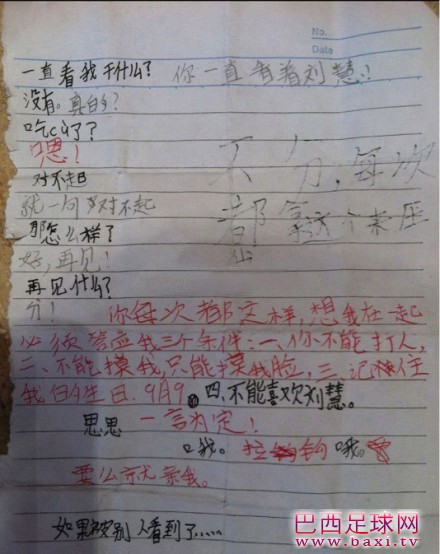 No.
Date
一直看我干什么? 你一直看着刘慧!
没有。真的?
吃cù了?
嗯!
对不起
就一句对不起
不分,每次
都拿这个来压
那怎么样了
好,再见!
再见什么?
分! 你每次都这样,想我在一起
必须答应我三个条件:一、你不能打人,
二、不能摸我,只能摸我脸,三、记住
我的生日.9月9。四、不能喜欢刘慧。
思思 一言为定!
口我。拉钩 哦。
要么就亲我。
如果被别人看到了......
巴西足球网
www.baxi.tv